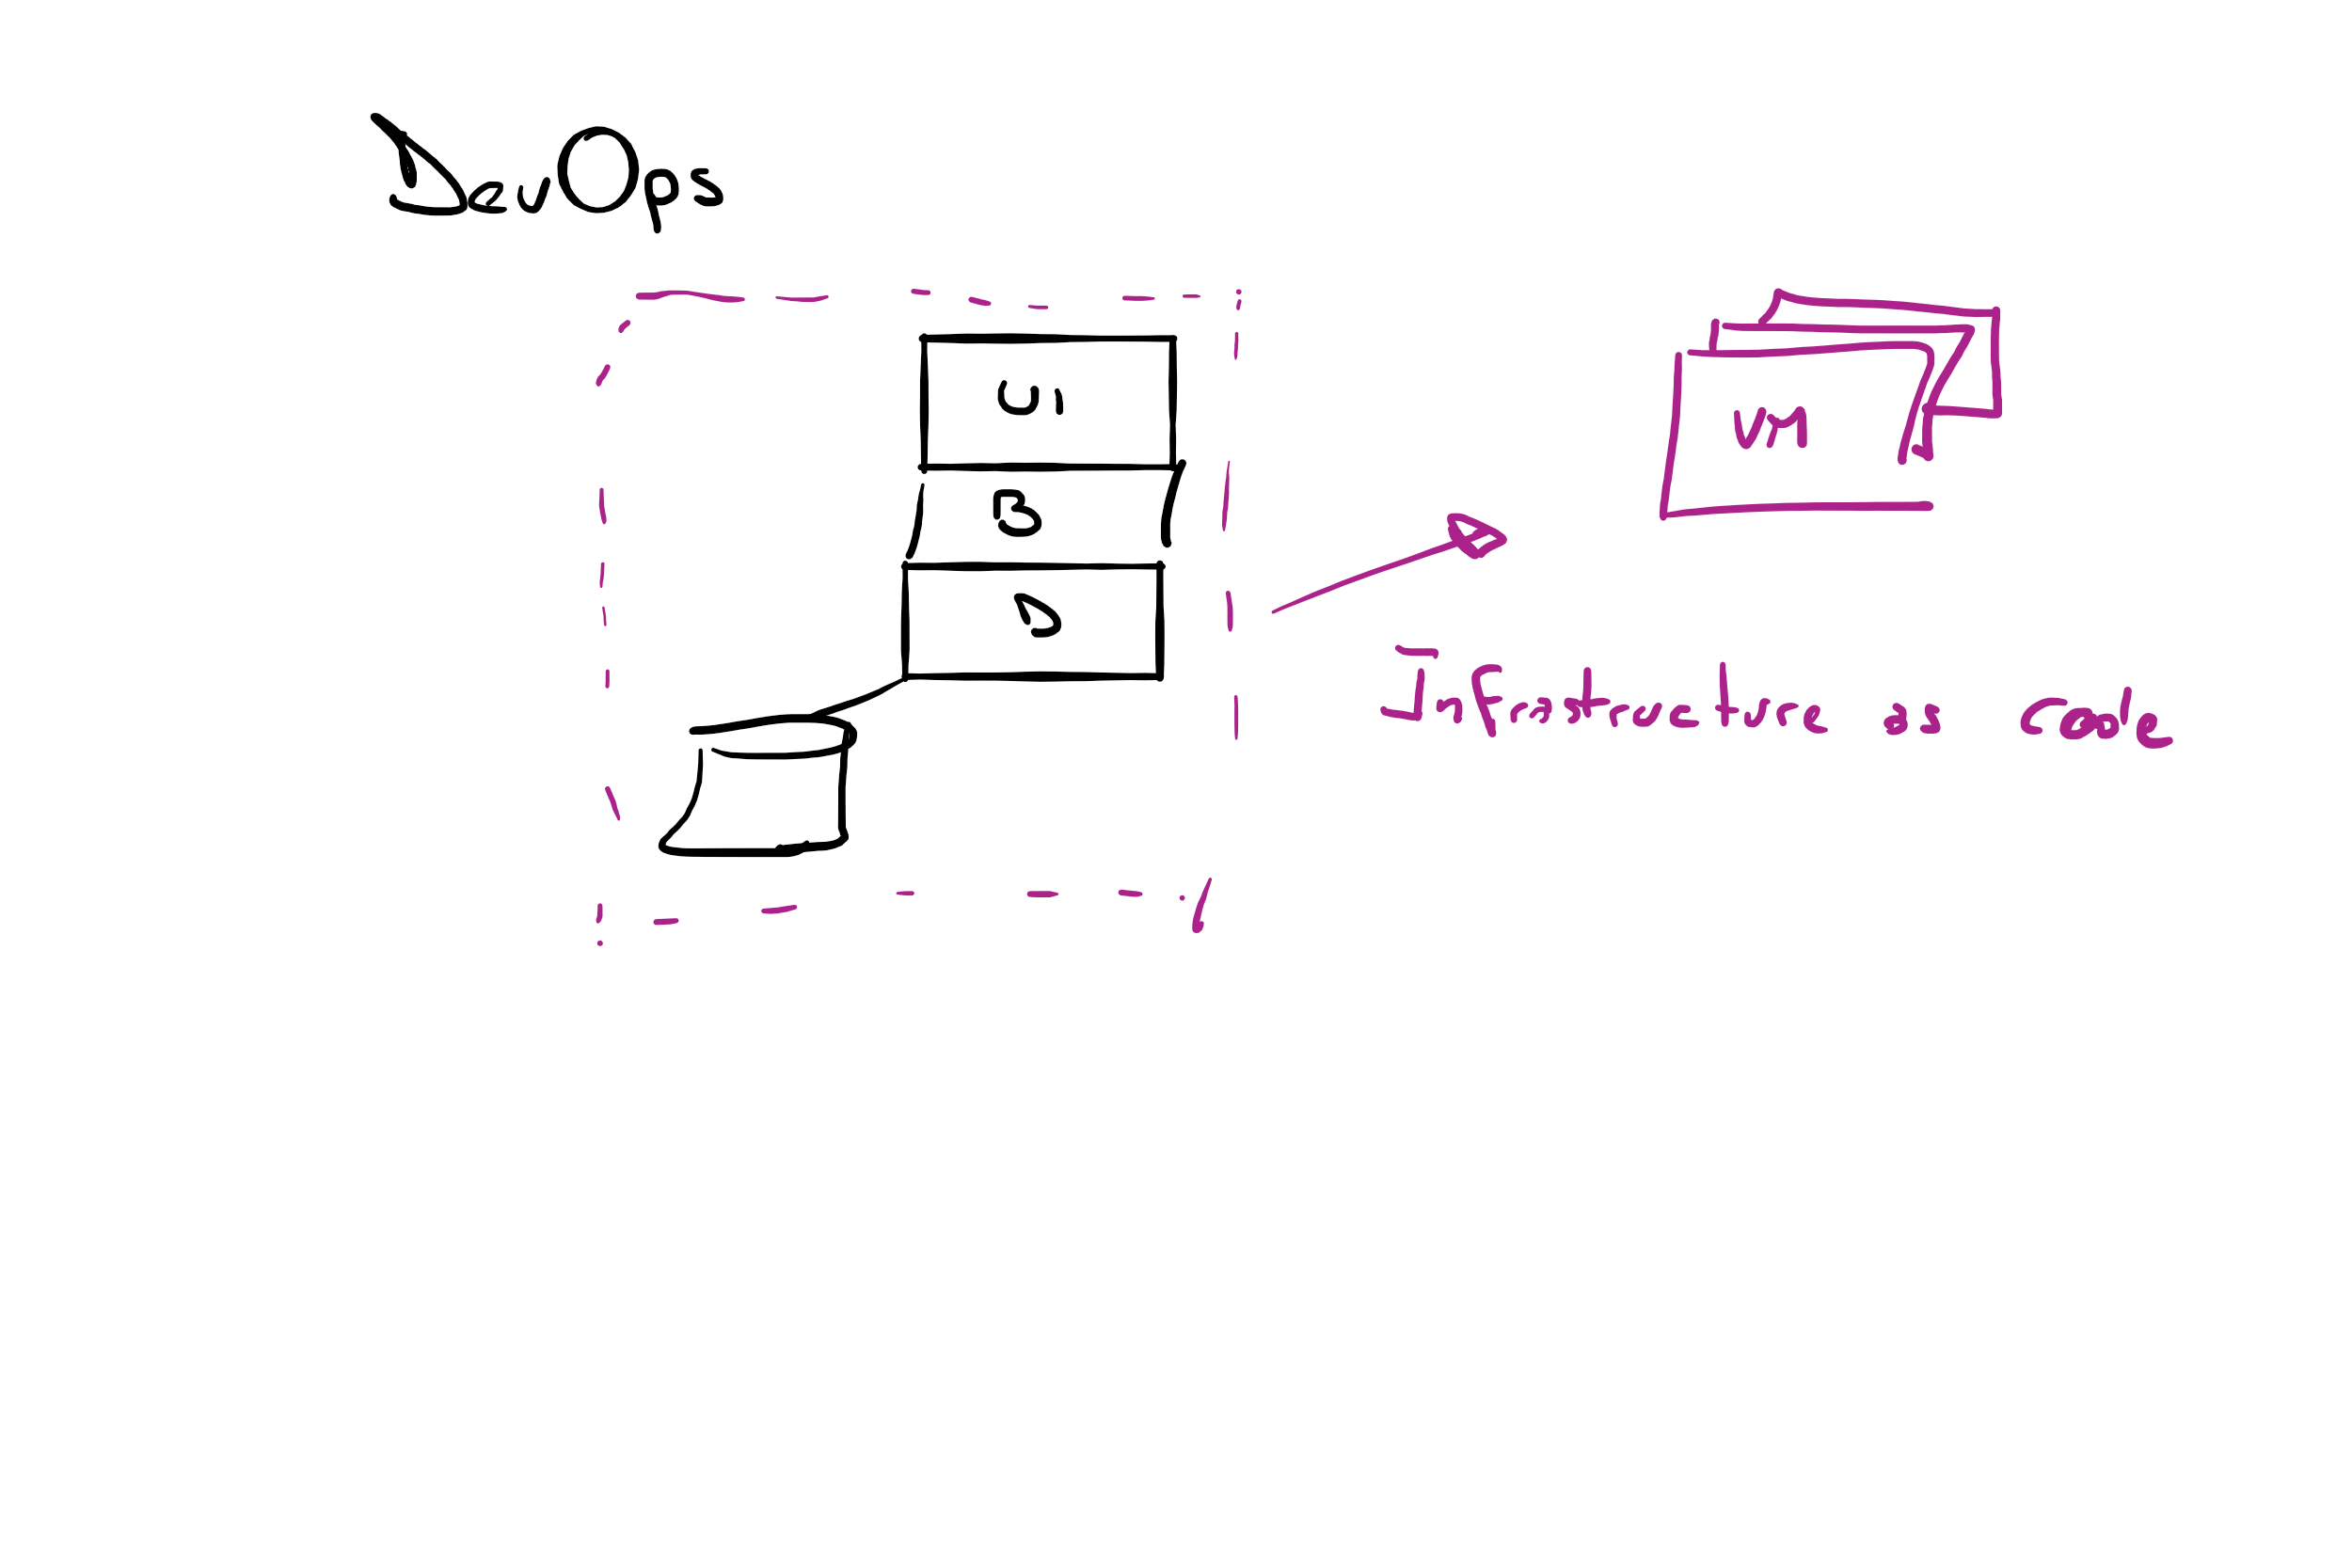 DevOps
UI
VM
B
D
Infrastructure as code